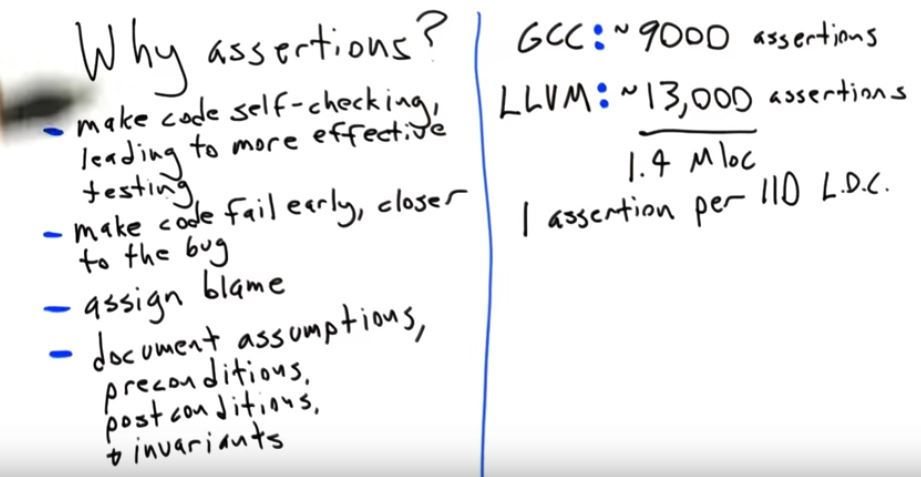 Why assertions?
- make code self-checking,
leading to more effective
testing
- make code fail early, closer
to the bug
- assign blame
- document assumptions,
preconditions,
postconditions,
+ invariants
GCC: ~9000 assertions
LLVM: ~13,000 assertions
1.4 Mloc
1 assertion per 110 L.O.C.